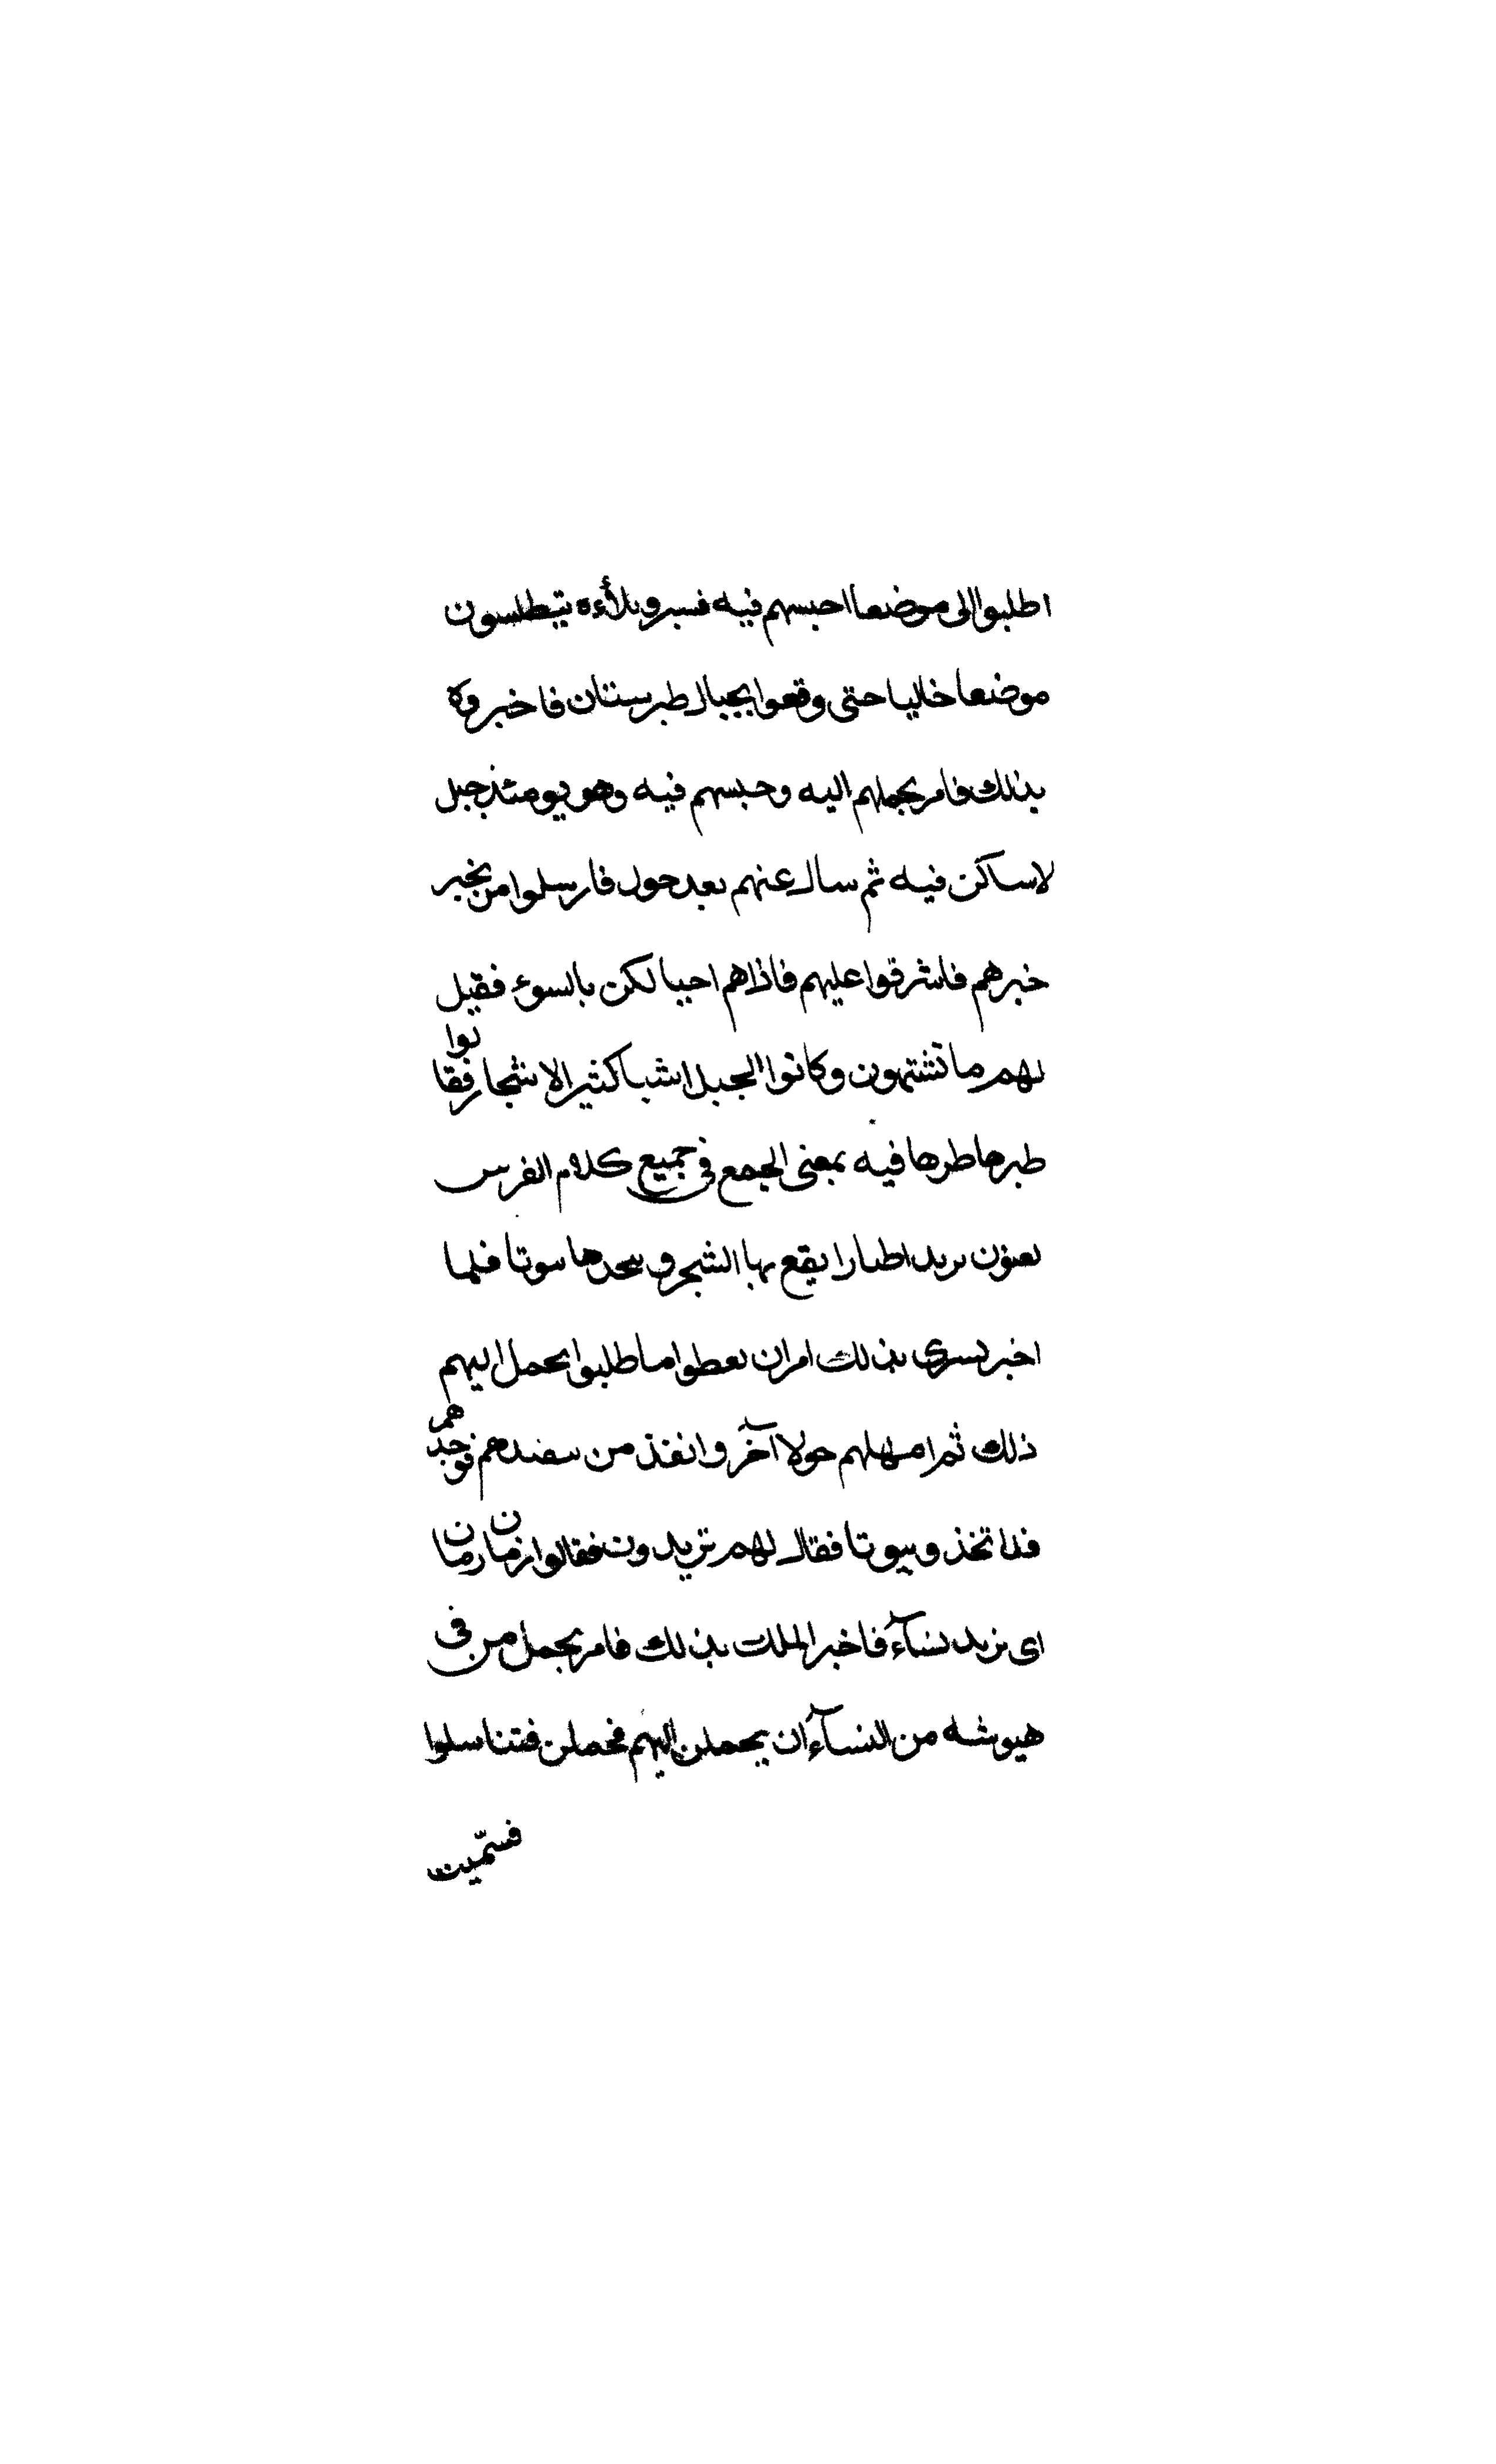 اطلبوا الى موضعا احبسهم فيه فسير وبلأءه يتطلسون
موضعا خاليا حتى وقعوا بجبال طبرستان فاخبروه
بذلك فامر بحملهم اليه وحبسهم فيه وهو يومئذ جبل
لا ساكن فيه ثم سال عنهم بعد حول فارسلوا من يخبر
خبرهم فاشرقوا عليهم فاذا هم احيا لكن بالسوء فقيل
لهم ما تشتهون وكانوا الجبل اشبا كثير الاشجار فقالوا
طبرها طرها فيه بمعنى الجمع في جميع كلام الفرس
يعنون نريد اطبارا يقع بها الشجر و بيوتا فلما
اخبر كسرى بذلك امر ان يعطوا ما طلبوا يحمل اليهم
ذلك ثم امهلهم حولا آخر وانفذ من هم فوجدهم
قد اتخذ و بيوتا فقال لهم تريدون فقالوا زنان زنان
اى نريد نسآء فاخبر الملك بذلك فامر بحمل من فى
من النسآء ان يحملن اليهم فحملن فتناسلوا
فسمّيت